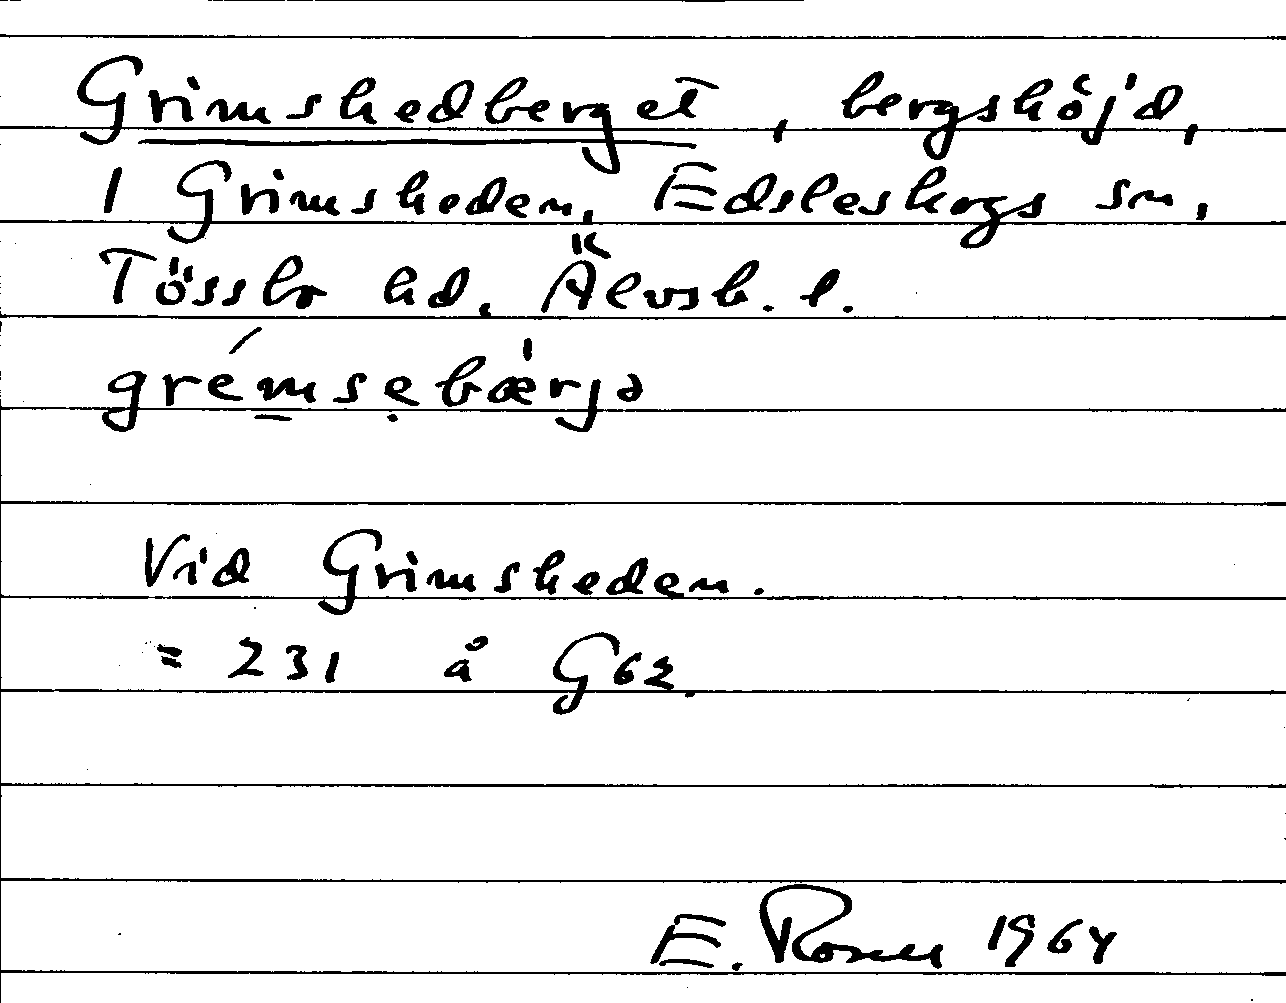 Grimshedberget, bergshöjd,
1 Grimsheden, Edsleskogs sn,
Tössbo hd, Älvsb. l.
grémsẹbærjə
Vid Grimsheden.
= 231 å G62.
E. Rosell 1964